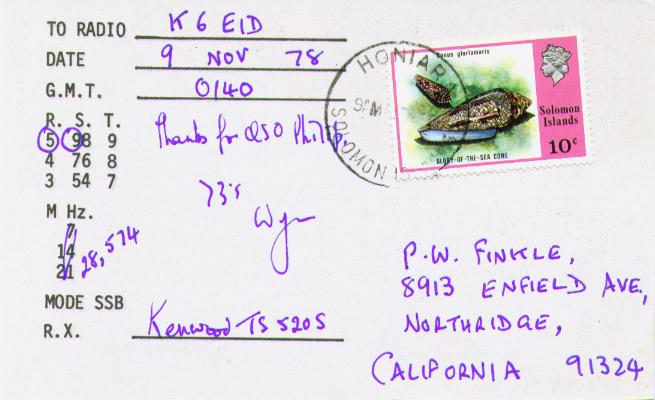 TO RADIO K6EID
DATE 9 NOV 78
G.M.T. 0140
R. S. T.
5 98 9
4 76 8
3 54 7
Thanks for QSO Philip.
73's
Wyn
M Hz.
7
14
21
28,574
MODE SSB
R.X. Kenwood TS 520S
HONIARA
9 NO
SOLOMON IS
Conus gloriamaris
Solomon
Islands
10c
GLORY-OF-THE-SEA CONE
P.W. FINKLE,
8913 ENFIELD AVE,
NORTHRIDGE,
CALIFORNIA 91324